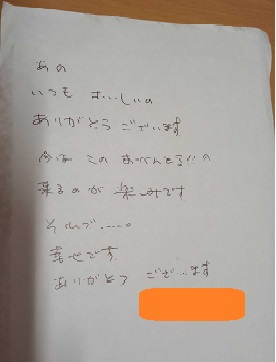 あの
いつも おいしいの
ありがとうございます
この
来るのが 楽しみです
それで.....
幸せです。
ありがとう ございます